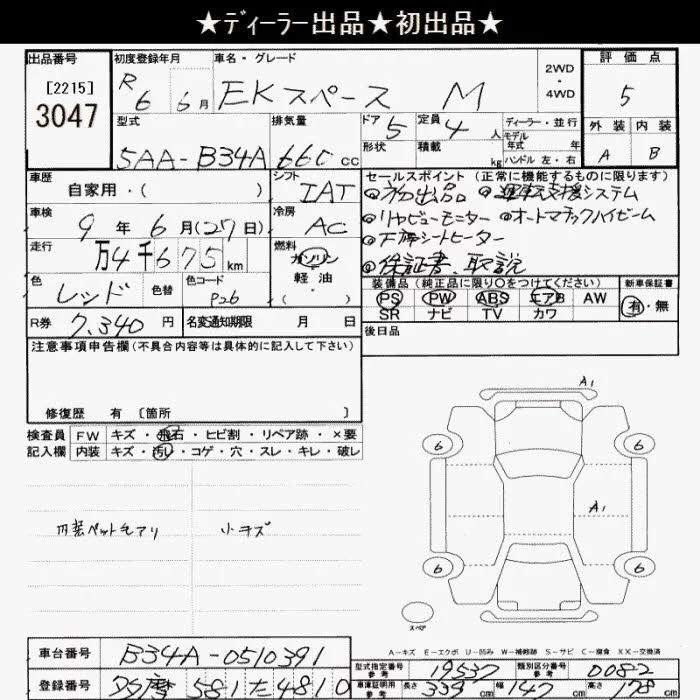 ★ディーラー出品★初出品★
出品番号 初度登録年月 車名・グレード 2WD・4WD 評価点
[2215] 3047 R6 6月 EKスペース M 5
型式 排気量 ドア 5 定員 4人 ディーラー・並行 外装 内装
モデル年式 年
5AA-B34A 660cc 形状 積載 kg ハンドル 左・右 A B
車歴 自家用・( ) シフト IAT セールスポイント (正常に機能するものに限ります)
◎初出品 ◎運転支援システム
車検 9年 6月(27日) 冷房 AC ◎リヤビューモニター ◎オートマチックハイビーム
走行 万4千675km 燃料 ガソリン・軽油・( ) ◎下席シートヒーター
◎保証書、取説
色 レッド 色替 色コード P26 装備品 (純正品に限り○をつけてください) 新車保証書
PS PW ABS エアB AW 有・無
SR ナビ TV カワ
R券 7,340円 名変通知期限 月 日 後日品
注意事項申告欄(不具合内容等は具体的に記入して下さい)
修復歴 有 〔箇所 〕
検査員 FW キズ・飛石・ヒビ割・リペア跡・×要
記入欄 内装 キズ・汚れ・コゲ・穴・スレ・キレ・破レ
内装ペット毛アリ 小キズ
A1
6 6
A1
6 6
スペア
A-キズ E-エクボ U-凹み W-補修跡 S-サビ C-腐食 XX-交換済
車台番号 B34A-0510391
型式指定番号 参考 19537 類別区分番号 参考 0082
登録番号 多摩 581 た 4810 車庫証明用 参考 長さ 339cm 幅 147cm 高さ 178cm